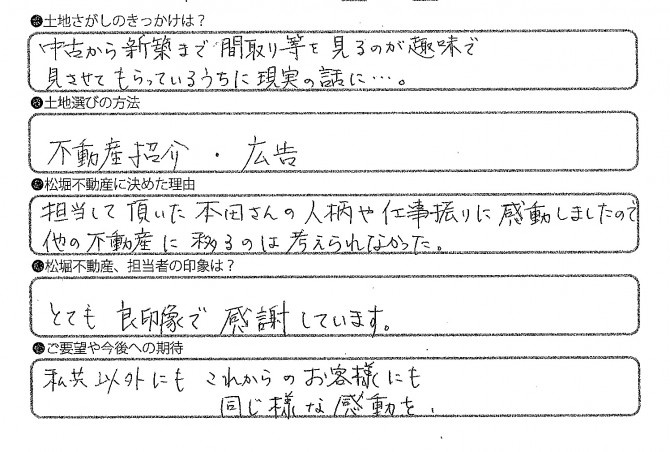 ●土地さがしのきっかけは？
中古から新築まで間取り等を見るのが趣味で
見させてもらっているうちに現実の話に…。
●土地選びの方法
不動産紹介・広告
●松堀不動産に決めた理由
担当して頂いた本田さんの人柄や仕事振りに感動しましたので
他の不動産に移るのは考えられなかった。
●松堀不動産、担当者の印象は？
とても良印象で感謝しています。
●ご要望や今後への期待
私共以外にもこれからのお客様にも
同じ様な感動を、